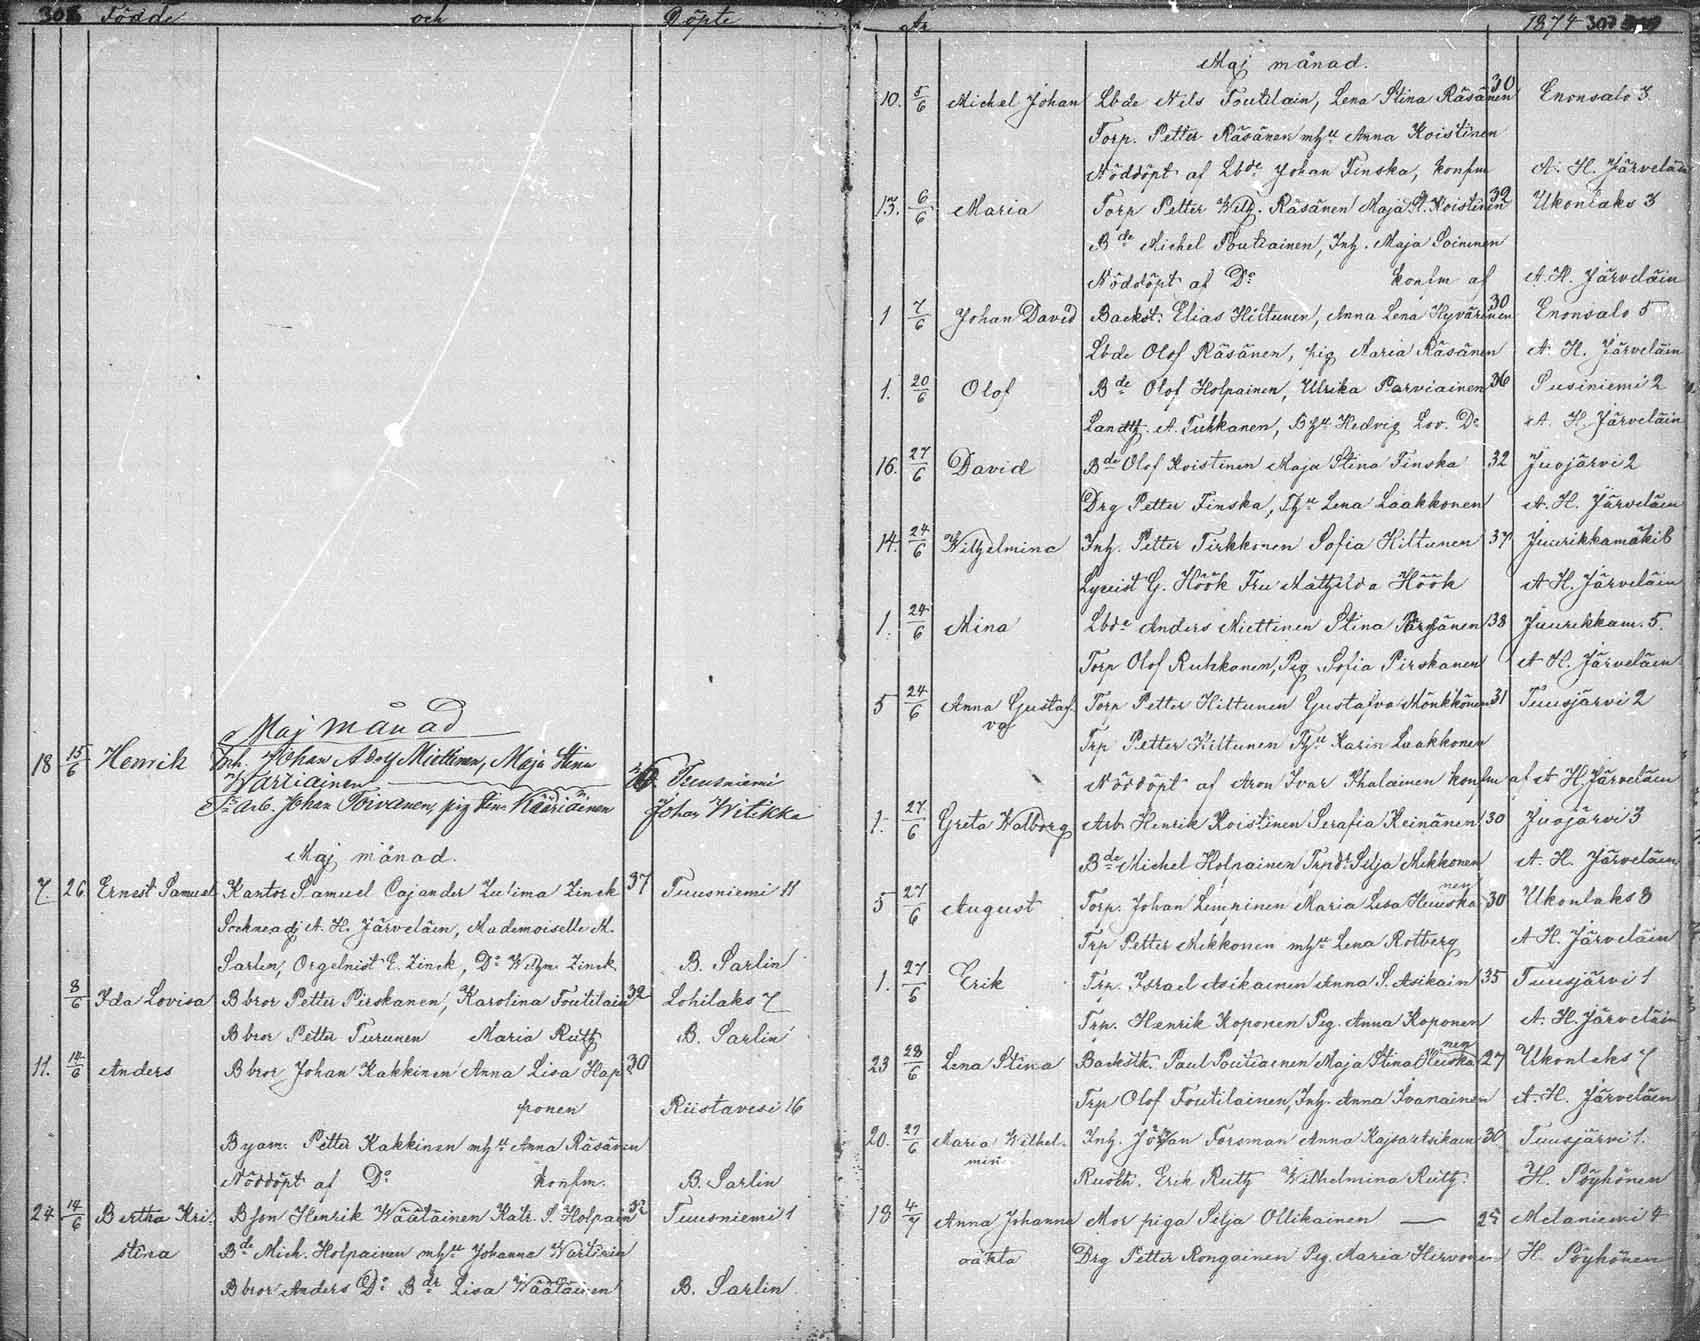 306 Födde och Döpte
Maj månad
18 15/6 Henrik Inh. Johan Adolf Miettinen, Maja Stina
Wartiainen Tuusniemi
Arb. Johan Toivanen, pig Stina Kääriäinen Johan Witikka
Maj månad.
7. 26 Ernest Samuel Kantor Samuel Cajander Zulima Zinck 37 Tuusniemi 11
Sockneadj A. H. Järveläin, Mademoiselle M.
Sarlin, Orgelnist E. Zinck, Do Wilhm. Zinck B. Sarlin
8/6 Ida Lovisa Bbror Petter Pirskanen, Karolina Foutilain 32 Lohilaks 7
Bbror Petter Turunen Maria Ruth B. Sarlin
11. 14/6 Anders Bbror Johan Kakkinen Anna Lisa Hap 30
ponen Riistavesi 16
Byam. Petter Kakkinen mhu Anna Räsänen
Nöddöpt af Do konfm. B. Sarlin
24 14/6 Bertha Kri- Bson Henrik Wäätäinen Katr. S. Holpain 32 Tuusniemi 1
stina Bde Mich. Holpainen mhu Johanna Wartinin
Bbror Anders Do Bdr Lisa Wäätäinen B. Sarlin
År 1874 307
Maj månad.
10. 5/6 Michel Johan Lbde Nils Foutilain, Lena Stina Räsänen 30 Enonsalo 3
Torp. Petter Räsänen mhu Anna Koistinen
Nöddöpt af Lbde Johan Finska, konfm A. H. Järveläin
13. 6/6 Maria Torp Petter Wilh. Räsänen Maja St. Koistinen 32 Ukonlaks 3
Bde Michel Poutiainen, Inh. Maja Soininen
Nöddöpt af Do konfm af A. H. Järveläin
1 7/6 Johan David Backst. Elias Hiltunen, Anna Lena Hyvärinen 30 Enonsalo 5
Lbde Olof Räsänen, pig Maria Räsänen A. H. Järveläin
1. 20/6 Olof Bde Olof Holpainen, Ulrika Parviainen 36 Susiniemi 2
Landth. A. Tuhkanen, Bhu Hedvig Lov. Do A. H. Järveläin
16. 27/6 David Bde Olof Koistinen Maja Stina Finska 32 Juojärvi 2
Drg Petter Finska, Thu Lena Laakkonen A. H. Järveläin
14. 24/6 Wilhelmina Inh. Petter Tirkkonen Sofia Hiltunen 37 Juurikkamäki 6
Lyceist G. Höök Fru Mathilda Höök A H. Järveläin
1. 24/6 Mina Lbde Anders Miettinen Stina 38 Juurikkam. 5.
Torp Olof Ruhkanen, Pig Sofia Pirskanen A H. Järveläin
5 24/6 Anna Gustaf- Torp Petter Hiltunen Gustafva Mönkkönen 31 Tuusjärvi 2
va Trp Petter Hiltunen Thu Karin Laakkonen
Nöddöpt af Aron Ivar Ihalainen konfm af A H. Järveläin
1. 27/6 Greta Walborg Arb Henrik Koistinen Serafia Keinänen 30 Juojärvi 3
Bde Michel Holpainen Trpdr Silja Mikkonen A. H. Järveläin
5 27/6 August Torp. Johan Limpinen Maria Lisa Huuska 30 Ukonlaks 8
nen
Trp Petter Mikkonen mhu Lena Rotberg A H. Järveläin
1. 27/6 Erik Trp. Israel Asikainen Anna S. Asikain 35 Tuusjärvi 1
Trp. Henrik Koponen Pig. Anna Koponen A. H. Järveläin
23 28/6 Lena Stina Backstk. Paul Poutiainen Maja Stina Huuska 27 Ukonlaks 7
nen
Trp Olof Foutilainen, Inh. Anna Ivanainen A. H. Järveläin
20. 27/6 Maria Wilhel- Inh. Johan Forsman Anna Kajsa Asikain 30 Tuusjärvi 1.
min Rusth. Erik Ruth Wilhelmina Ruth. H. Pöyhönen
18 4/7 Anna Johanna Mor piga Silja Ollikainen — 25 Melaniemi 4
oäkta Drg Petter Rongainen Pig. Maria Hirvonen H. Pöyhönen